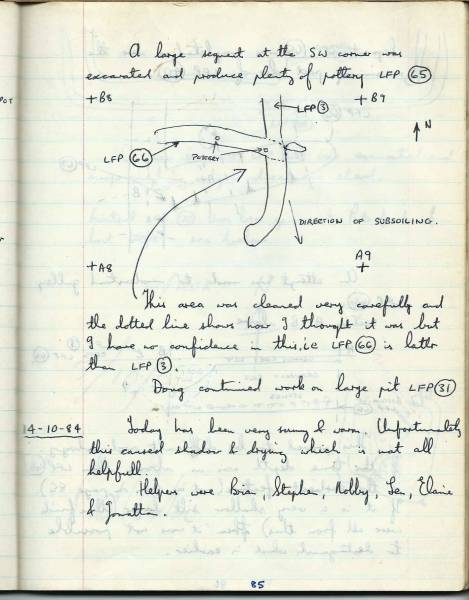 A large segment at the SW corner was
excavated and produce plenty of pottery LFP 65
+B8
LFP 3
+B9
N
LFP 66
POTTERY
DIRECTION OF SUBSOILING.
+A8
A9
+
This area was cleaned very carefully and
the dotted line shows how I thought it was but
I have no confidence in this. i.e LFP 66 is latter
than LFP 3.
Doug continued work on large pit LFP 31
14-10-84
Today has been very sunny & warm. Unfortunately
this caused shadow & drying which is not all
helpfull.
Helpers were Brian, Stephen, Nobby, Len, Elaine
& Jonathan.
85